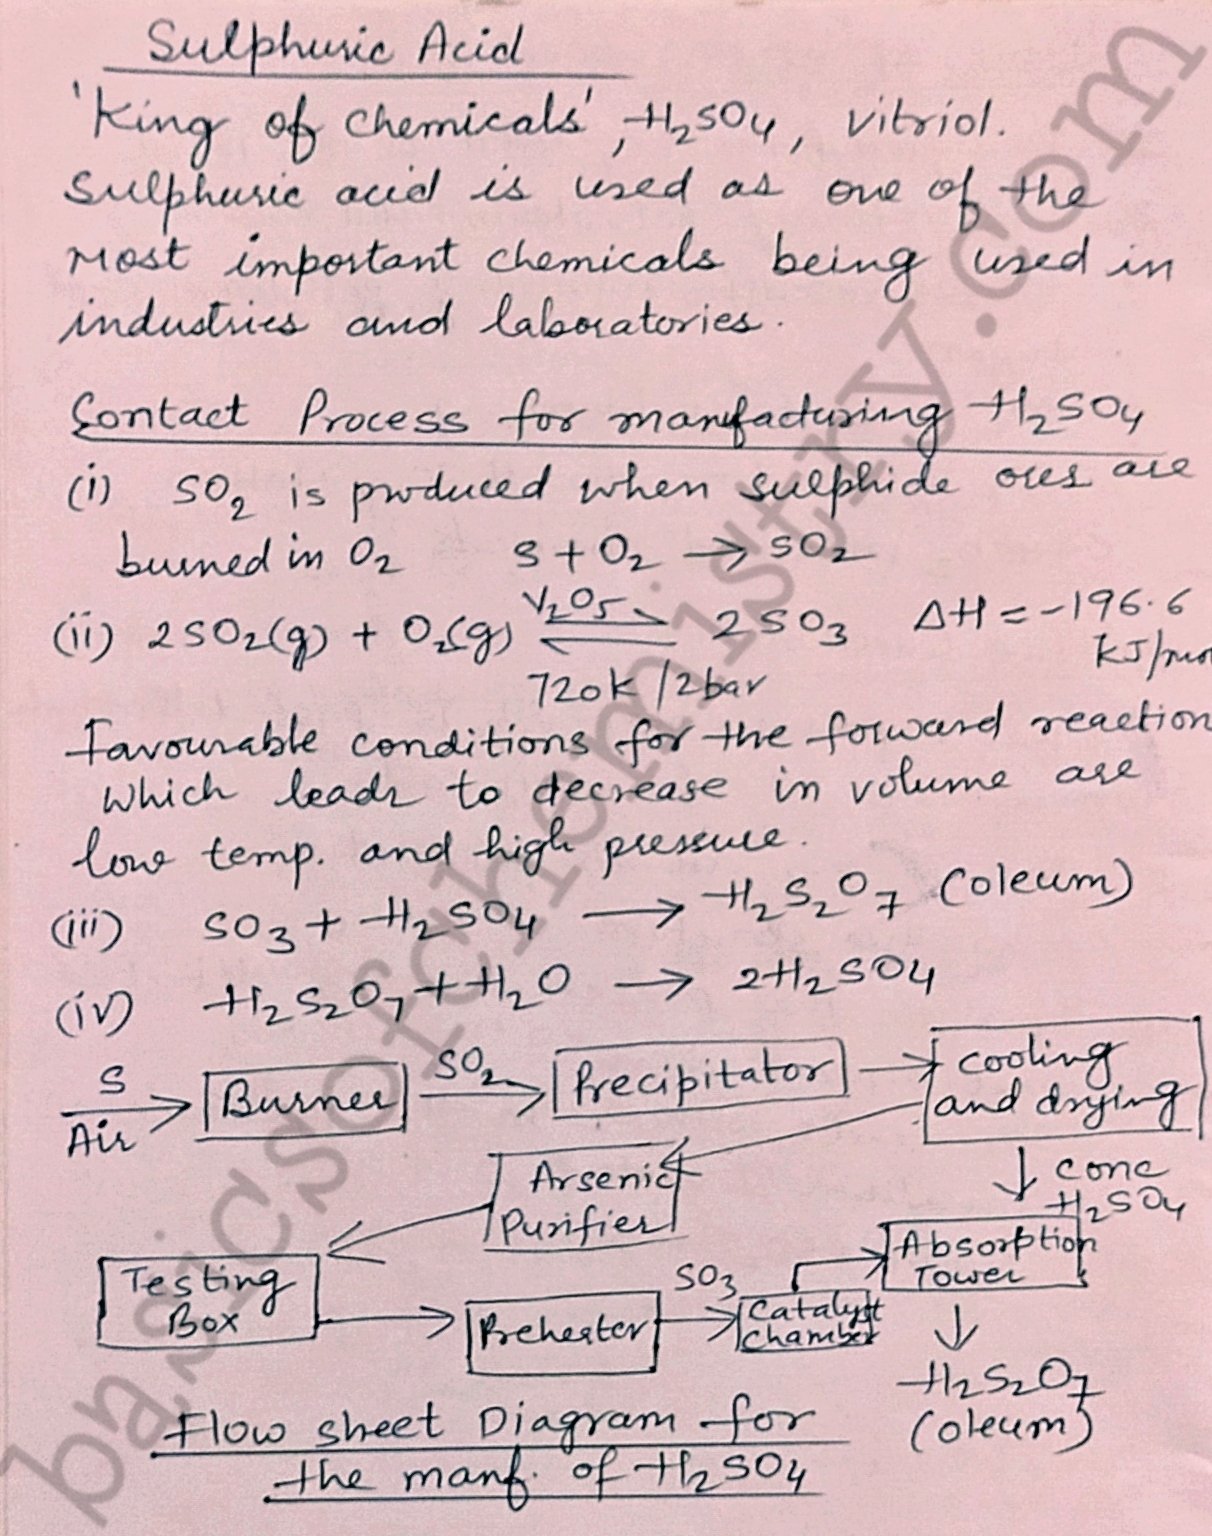 Sulphuric Acid
'King of chemicals', H₂SO₄, vitriol.
Sulphuric acid is used as one of the
most important chemicals being used in
industries and laboratories.
Contact Process for manufacturing H₂SO₄
(i) SO₂ is produced when sulphide ores are
burned in O₂ S + O₂ → SO₂
V₂O₅
(ii) 2SO₂(g) + O₂(g) ⇌ 2SO₃ ΔH = -196.6
kJ/mol
720K / 2bar
Favourable conditions for the forward reaction
which leads to decrease in volume are
low temp. and high pressure.
(iii) SO₃ + H₂SO₄ → H₂S₂O₇ (oleum)
(iv) H₂S₂O₇ + H₂O → 2H₂SO₄
S
Air
Burner
SO₂
Precipitator
cooling
and drying
Arsenic
Purifier
conc
H₂SO₄
Testing
Box
Preheater
SO₃
Catalyst
chamber
Absorption
Tower
H₂S₂O₇
(oleum)
Flow sheet Diagram for
the manf. of H₂SO₄
basicsofchemistry.com